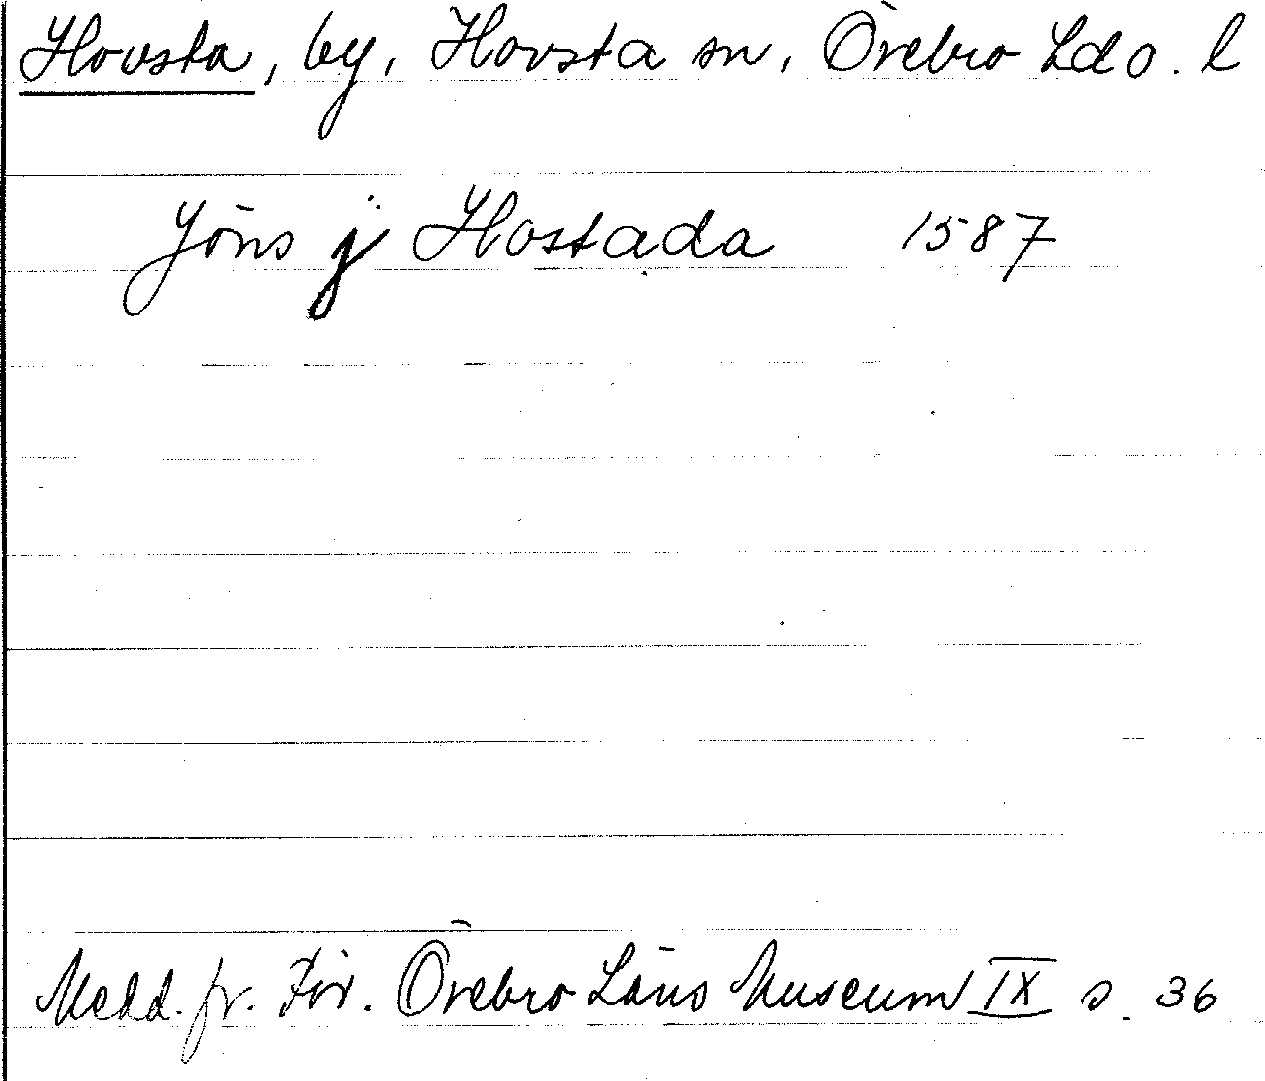 Hovsta, by, Hovsta sn, Örebro hd o. l
Jöns j Hostada 1587
Medd. fr. För. Örebro Läns Museum IX s. 36